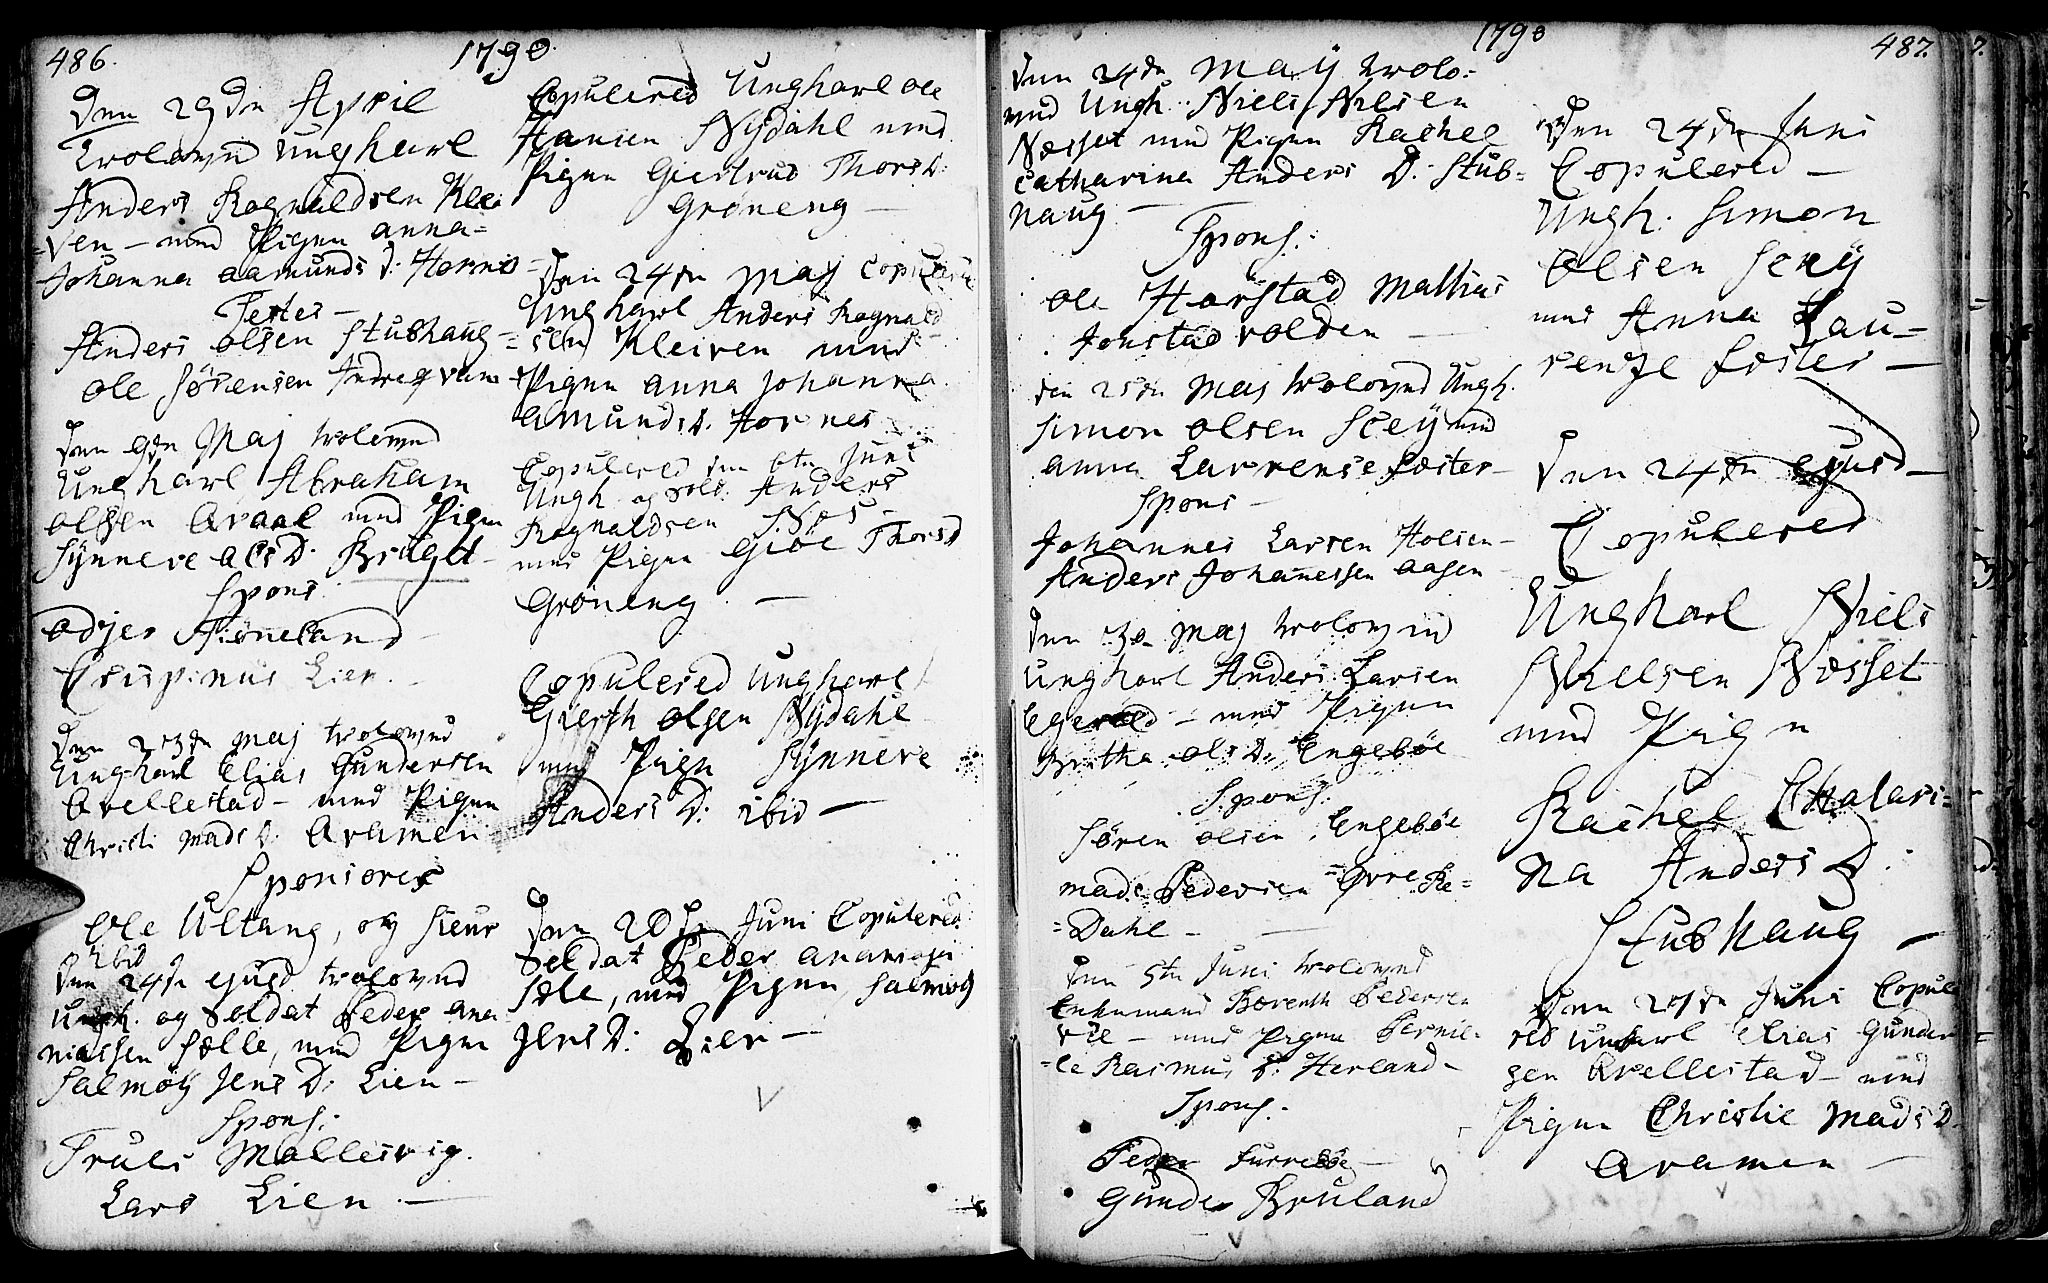 486.
1790
Den 29de April
Trolovede Ungkarl
Anders Rognaldsen Klei
=ven - med Pigen Anna=
Johanna Aamunds D: Hornes
Testes -
Anders Olsen Stubhaug
Ole Sørensen Indreqvam
Den 9de Maj trolovede
Ungkarl Abraham
Olssen Qvaal med Pigen
Synneve Ols D: Bruget
Spons:
Crispinus Lien.
Den 23de Maj trolovede
Ungkarl Elias Gundersen
Qvellestad - med Pigen
Christi Mads D: Qvamen
Sponsores
Ole Ultang, og Sieur
ibid
Den 24de ejusd trolovede
Ungk. og Soldat Peder Ana
niassen Sælle, med Pigen
Salmøy Jens D: Lien -
Spons:
Truls Mollesvig.
Lars Lien. -
Copulered Ungkarl Ole
Hansen Nydahl med
Pigen Giertrud Thors D:
Grøneng -
Den 24de Maj Copulered
Ungkarl Anders Rognald
sen Kleiven med
Pigen Anna Johanna
Amunds D. Hornes
Copulered den 6te Juni
Ungk. og Sold: Anders
Rognaldsen Nes -
med Pigen Giøe Thors D
Grøneng -
Copulered Ungkarl
Giersh Olsen Nydahl
med Pigen Synneve
Anders D: ibid -
Den 20de Juni Copulered
Soldat Peder Ananiasen
Sæle, med Pigen Salmøy
Jens D: Lien -
1790
487.
Den 24de May trolo=
ved Ungk: Niels Nilsen
Nesset med Pigen Rachel
Catharina Anders D: Stub=
haug -
Spons:
Ole Horstad Mathias
Jonstadvolden -
den 25de Maj trolovede Ungk.
Simon Olsen Seey med
Anna Lavrense Foster -
Spons -
Johannes Larsen Holsen -
Anders Johanessen Aasen -
Den 30 Maj trolovede
Ungkarl Anders Larsen
- med Pigen
Britha Ols D: Engebøe
Spons:
Søren Olsen Engebøe
Mads Pedersen Øvre Re=
=Dahl -
Den 5te Juni trolovede
Enkemand Berenth Pedersen
Vie - med Pigen Pernil=
=le Rasmus D: Herland -
Spons:
Peder Furrebøe -
Gunder Bruland
Den 24de Juni
Copulered -
Ungk. Simon
Olsen Seey
med Anna Lau=
renze Foster -
Den 24de ejusd -
Copulered
Ungkarl Niels
Nielsen Nesset
med Pigen
Rachel Chatari=
na Anders D:
Stubhaug -
Den 27de Juni Copule
red Unkarl Elias Gunder=
sen Qvellestad - med
Pigen Christie Mads D
Qvamen -